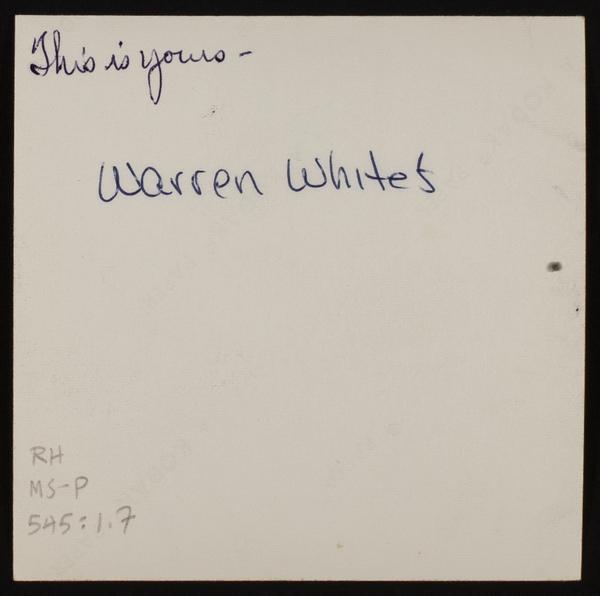 This is yours -
Warren Whites
RH
MS-P
545:1.7